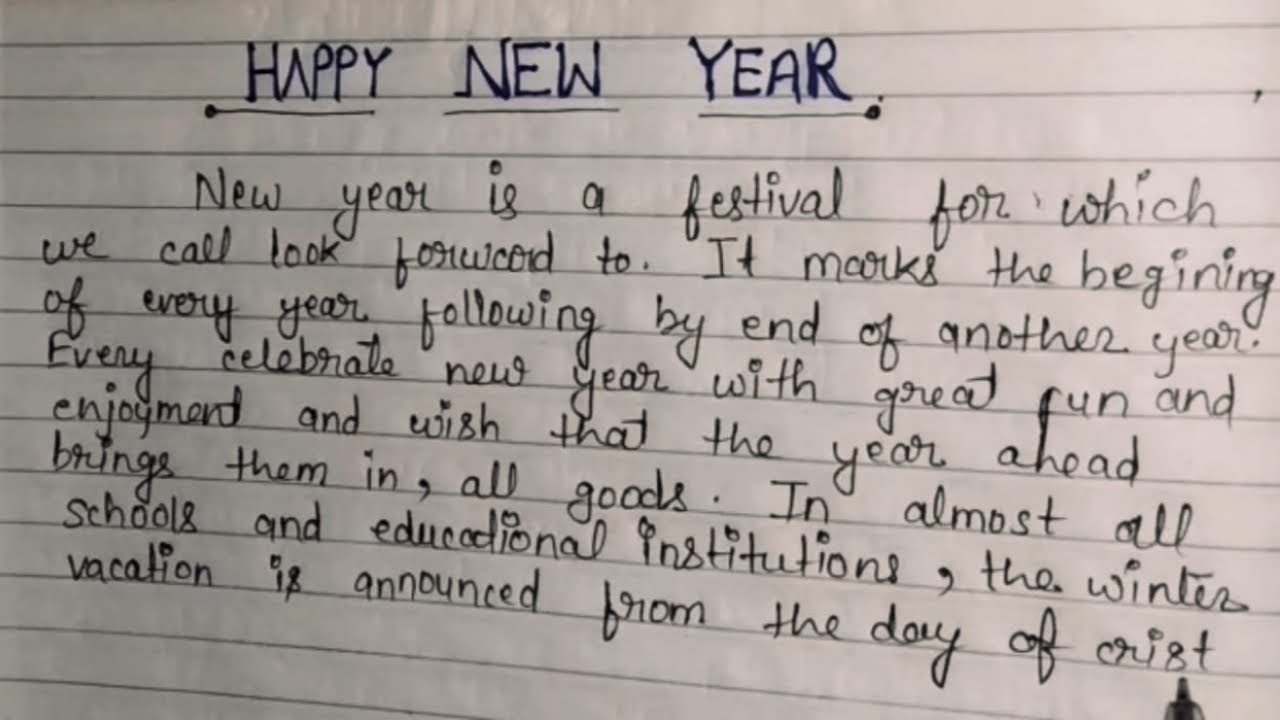 HAPPY NEW YEAR.
New year is a festival for which
we call look forward to. It marks the begining
of every year following by end of another year.
Every celebrate new year with great fun and
enjoyment and wish that the year ahead
brings them in, all goods. In almost all
schools and educational institutions, the winter
vacation is announced from the day of crist